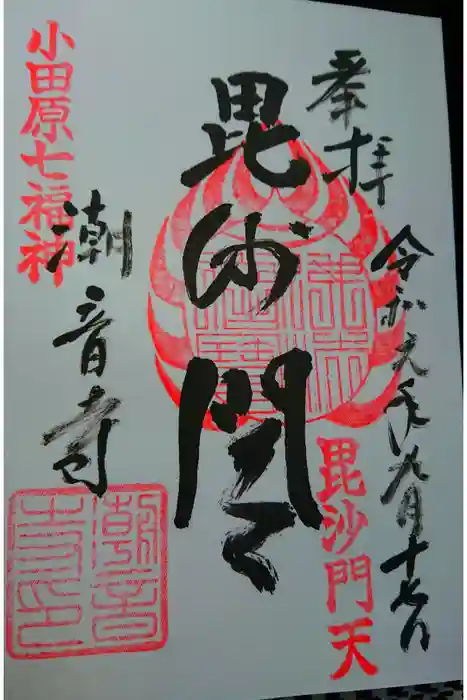 奉拝
令和元年九月十七日
毘沙門天
毘沙門天
佛法僧寶
小田原七福神
潮音寺
潮音寺印